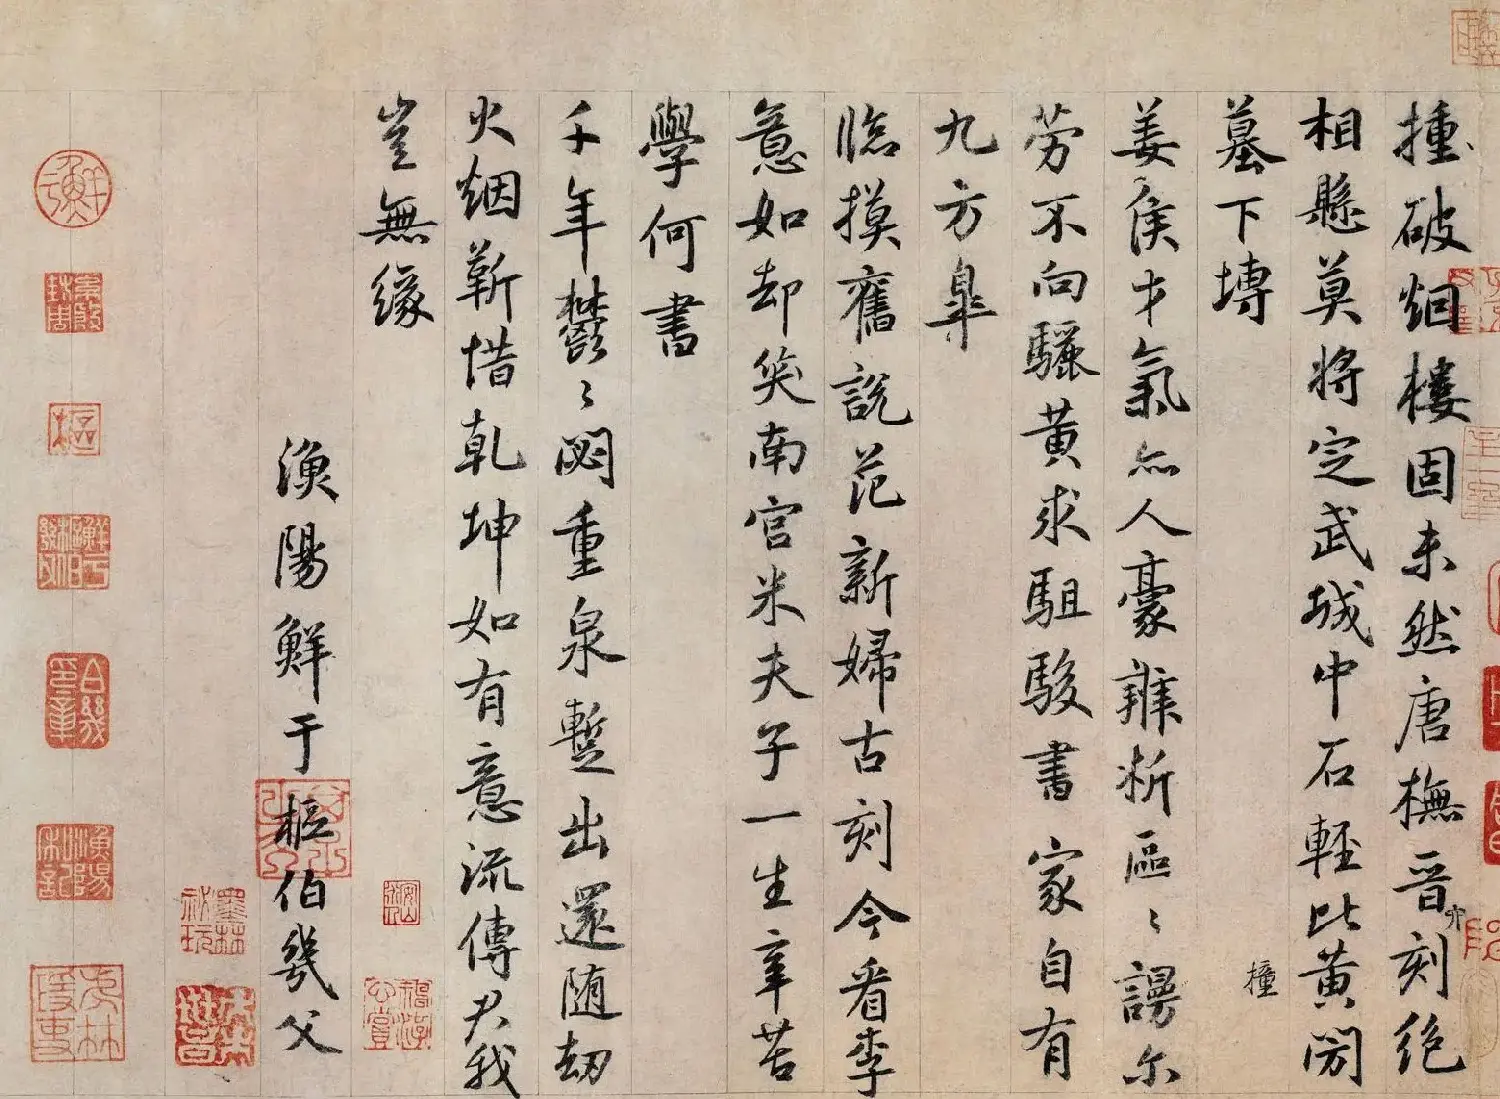 撞破烟樓固未然唐橅晉刻絶
相懸莫将定武城中石輕比黄閍
墓下塼
姜侯才氣亦人豪辨析區〻謾尔
劳不向驪黄求駔駿書家自有
九方臯
臨摸舊説范新婦古刻今看李
意如却笑南宫米夫子一生辛苦
學何書
千年鬱〻閟重泉暫出還随劫
火烟靳惜乾坤如有意流傳君我
豈無縁
漁陽鮮于樞伯幾父
撞
樞